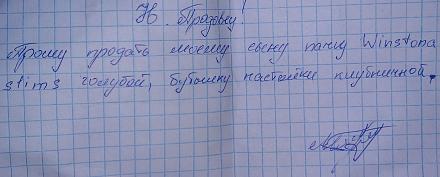 Н. Продавцу!
Прошу продать моему сыну пачку Winstona
slims голубой, бутылку настойки клубничной.